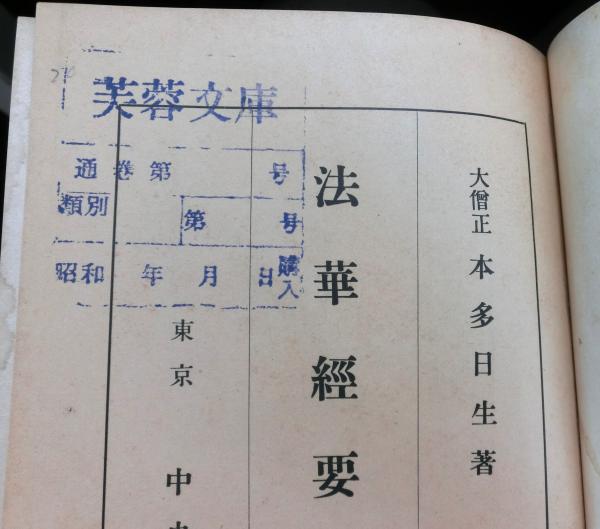 芙蓉文庫
通巻第 号
類別 第 号
昭和 年 月 日 購入
大僧正 本多日生著
法華經要
東京 中央